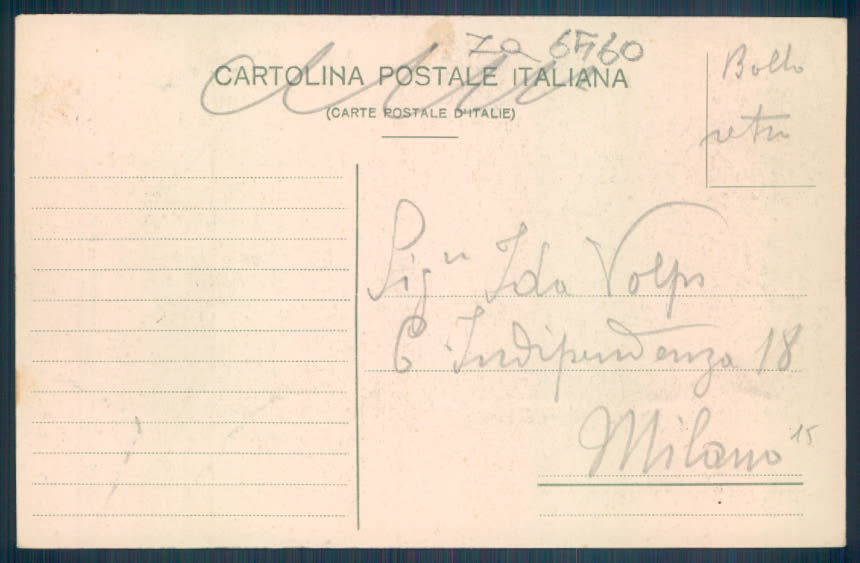 za 6560
CARTOLINA POSTALE ITALIANA
(CARTE POSTALE D'ITALIE)
Bollo
retro
Sig.na Ida Volpi
C Indipendenza 18
Milano
15